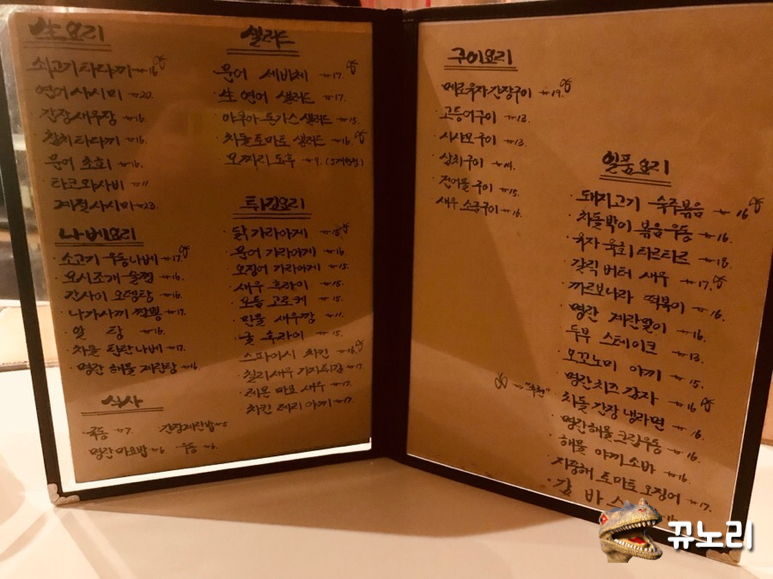 生요리
쇠고기 타다끼 16
연어 사시미 20.
간장새우장 16.
참치 타다끼 16.
문어 초회 16.
타코와사비 11
계절 사시미 23.
나베요리
소고기 우동나베 17.
모시조개 술찜 16.
간사이 오뎅탕 16.
나가사끼 짬뽕 17.
알 탕 16.
차돌 탄탄나베 17.
명란 해물 계란탕 16.
식사
우동 7.
명란마요밥 6.
샐러드
문어 세비체 17.
生 연어 샐러드 17.
차돌 토마토 샐러드 16.
모짜리 도후 9.
튀김요리
닭 가라아게 15
문어 가라아게 16.
오징어 가라아게 15.
새우 후라이 15.
모듬 고로케 15.
민물 새우깡 11.
굴 후라이 15.
스파이시 치킨 16
칠리새우 가지튀김 17.
레몬 마요 새우 17.
치킨 데리야끼 17.
구이요리
메로유자간장구이 19.
고등어구이 13.
시샤모구이 13.
삼치구이 14.
새우 소금구이 16.
일품요리
돼지고기 숙주볶음 16
차돌박이 볶음우동 16.
육사 육회 타르타르 18.
갈릭 버터 새우 17.
까르보나라 떡볶이 16.
명란 계란말이 16.
두부 스테이크 13.
오꼬노미 야끼 15.
명란치즈 감자 16
차돌 간장 냉라면 16.
명란해물크림우동 16.
해물 야끼소바 16.
지중해 토마토 오징어 17.
감 바 스
뀨노리